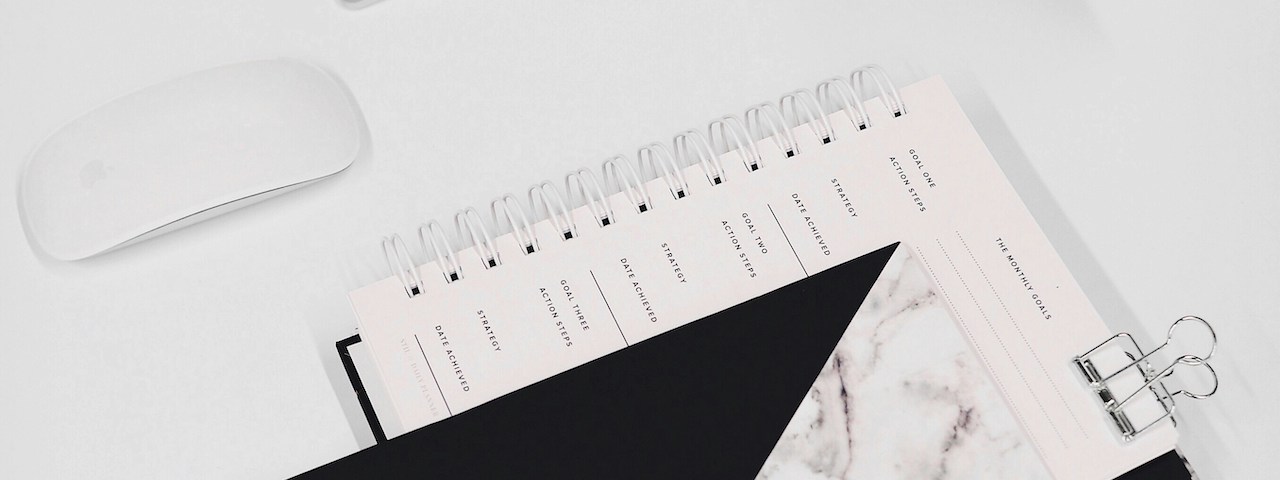 THE MONTHLY GOALS
GOAL ONE
ACTION STEPS
STRATEGY
DATE ACHIEVED
GOAL TWO
ACTION STEPS
STRATEGY
DATE ACHIEVED
GOAL THREE
ACTION STEPS
STRATEGY
DATE ACHIEVED
DAILY PLANNER